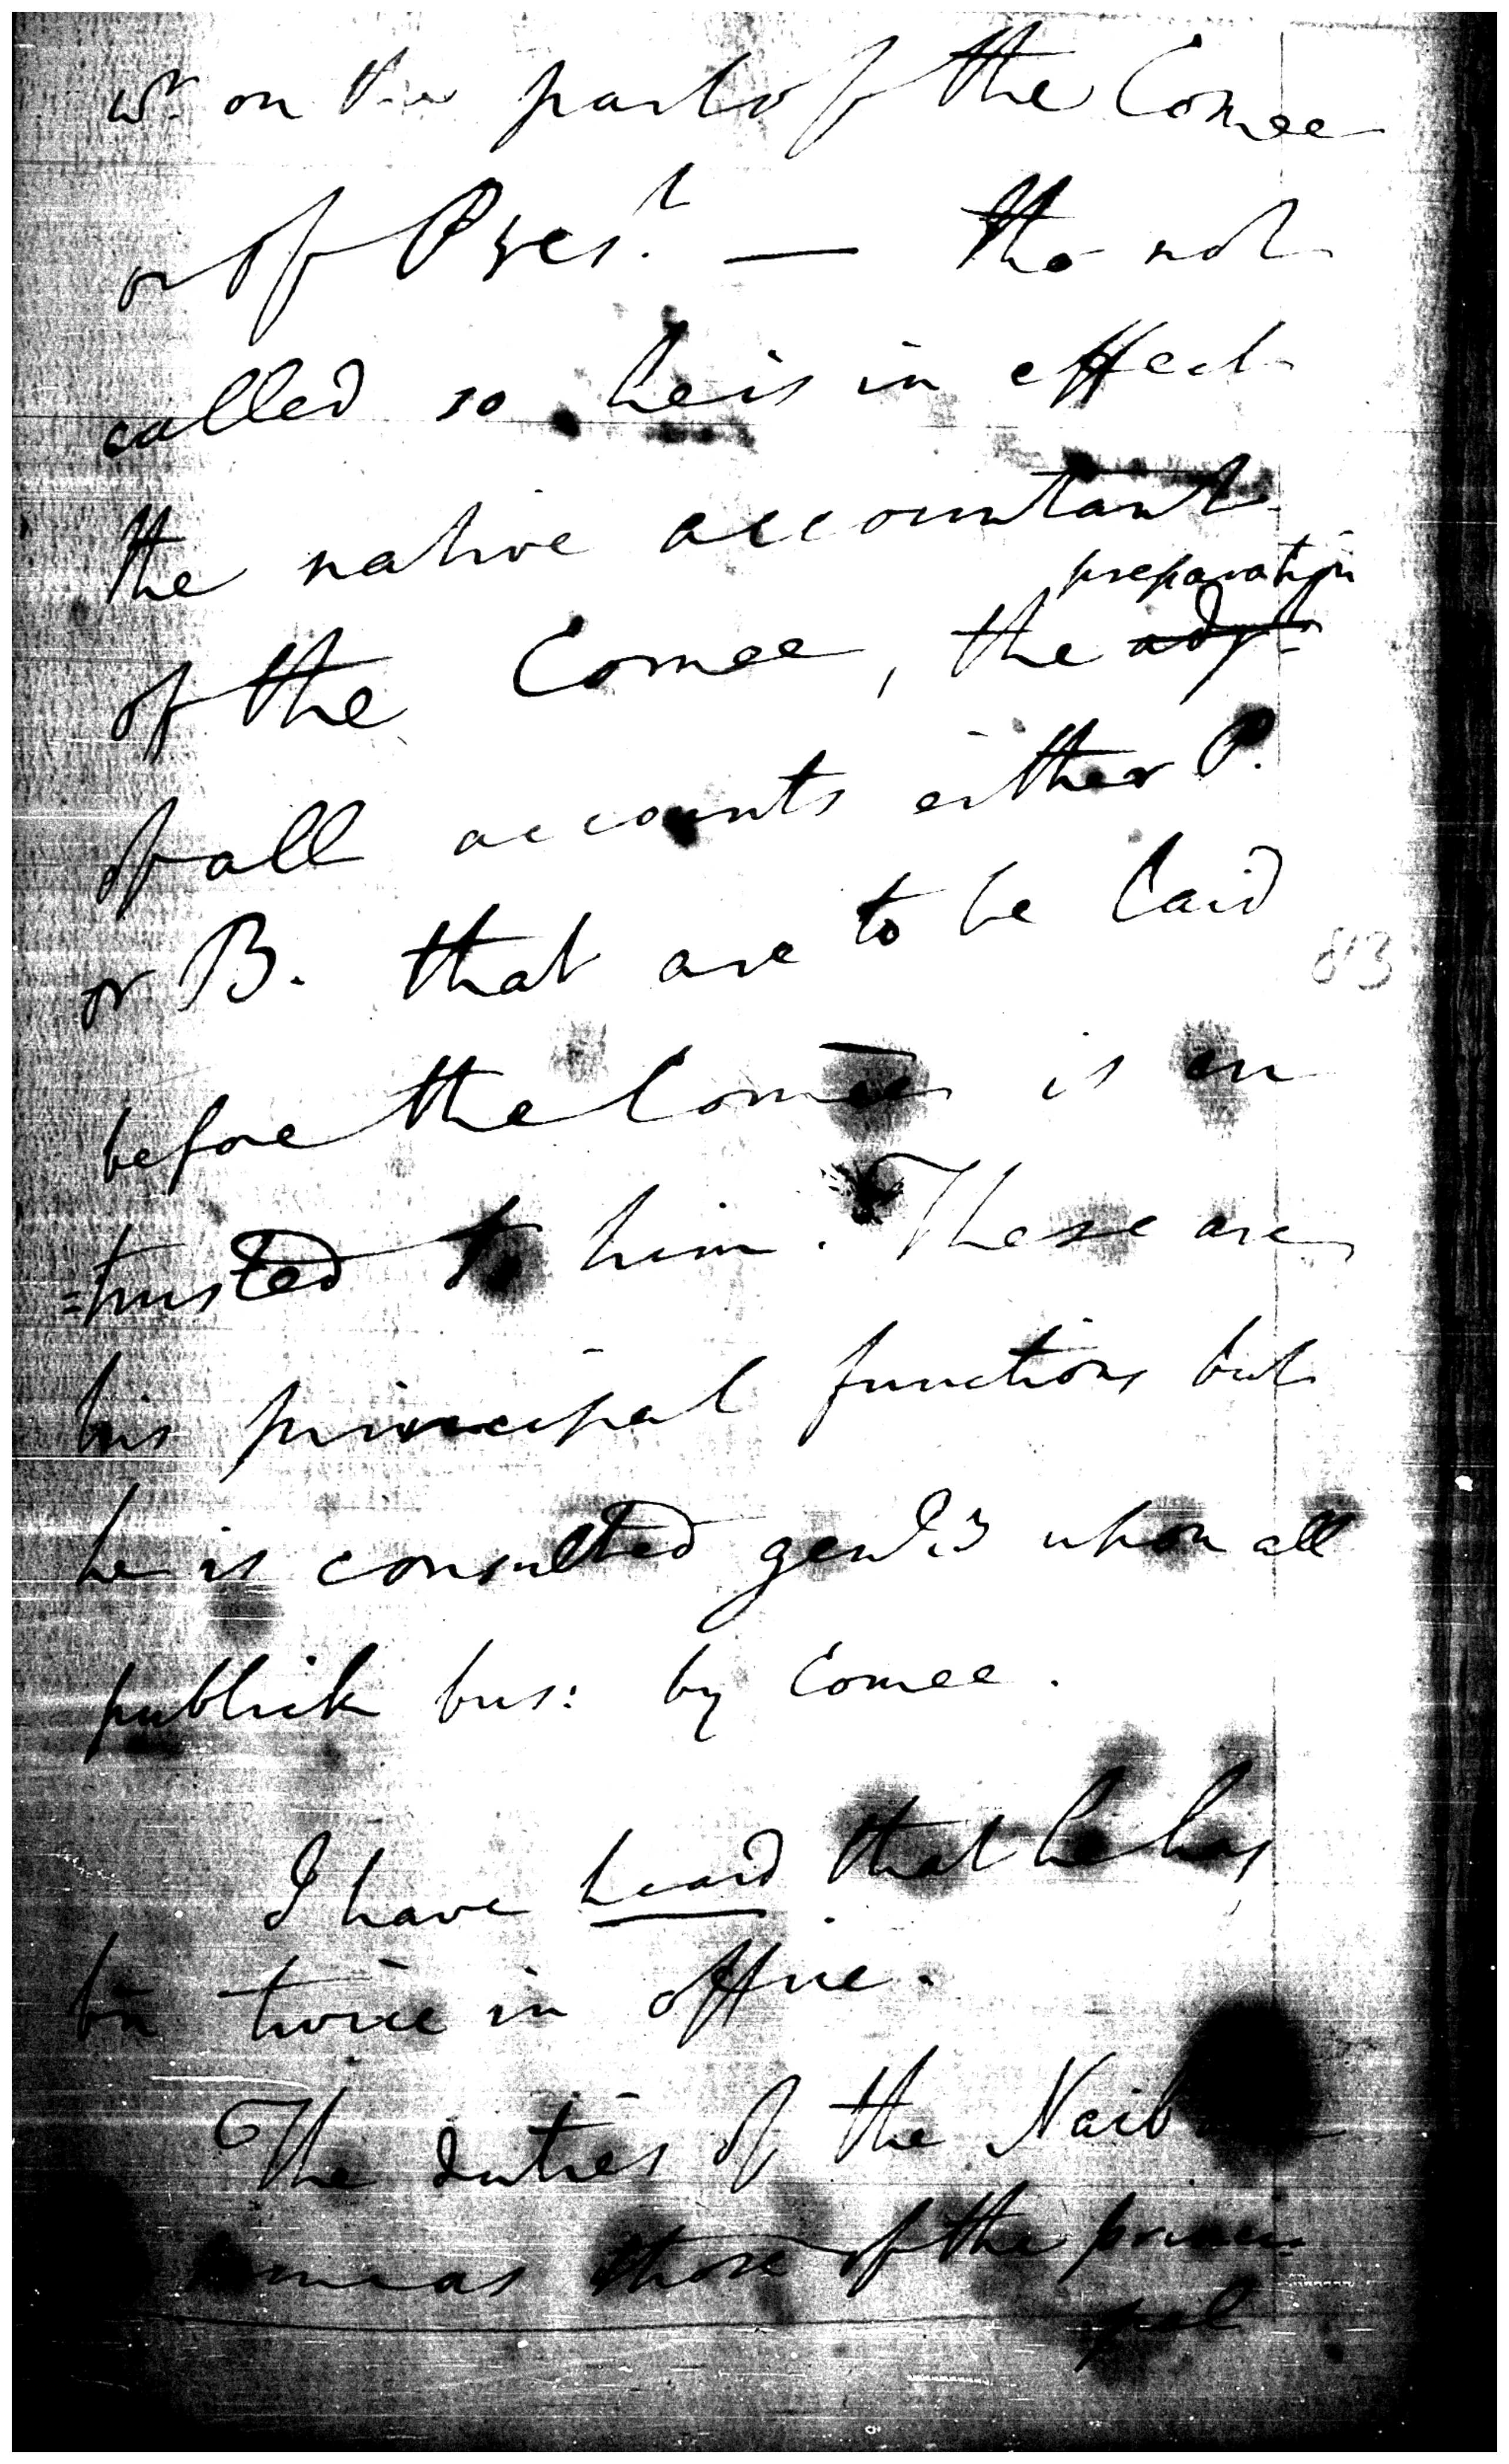 wr on the part of the Comee
or of Prest. — tho not
called so he is in effect
the native accountant
preparation
of the Comee, the adjt
of all accounts either P.
or B. that are to be laid
813
before the Comee is en
=trusted to him. These are
his principal functions but
he is consulted genly upon all
publick bus: by Comee.
I have heard that he has
bn twice in office.
The duties of the Naib
same as those of the princi=
pal